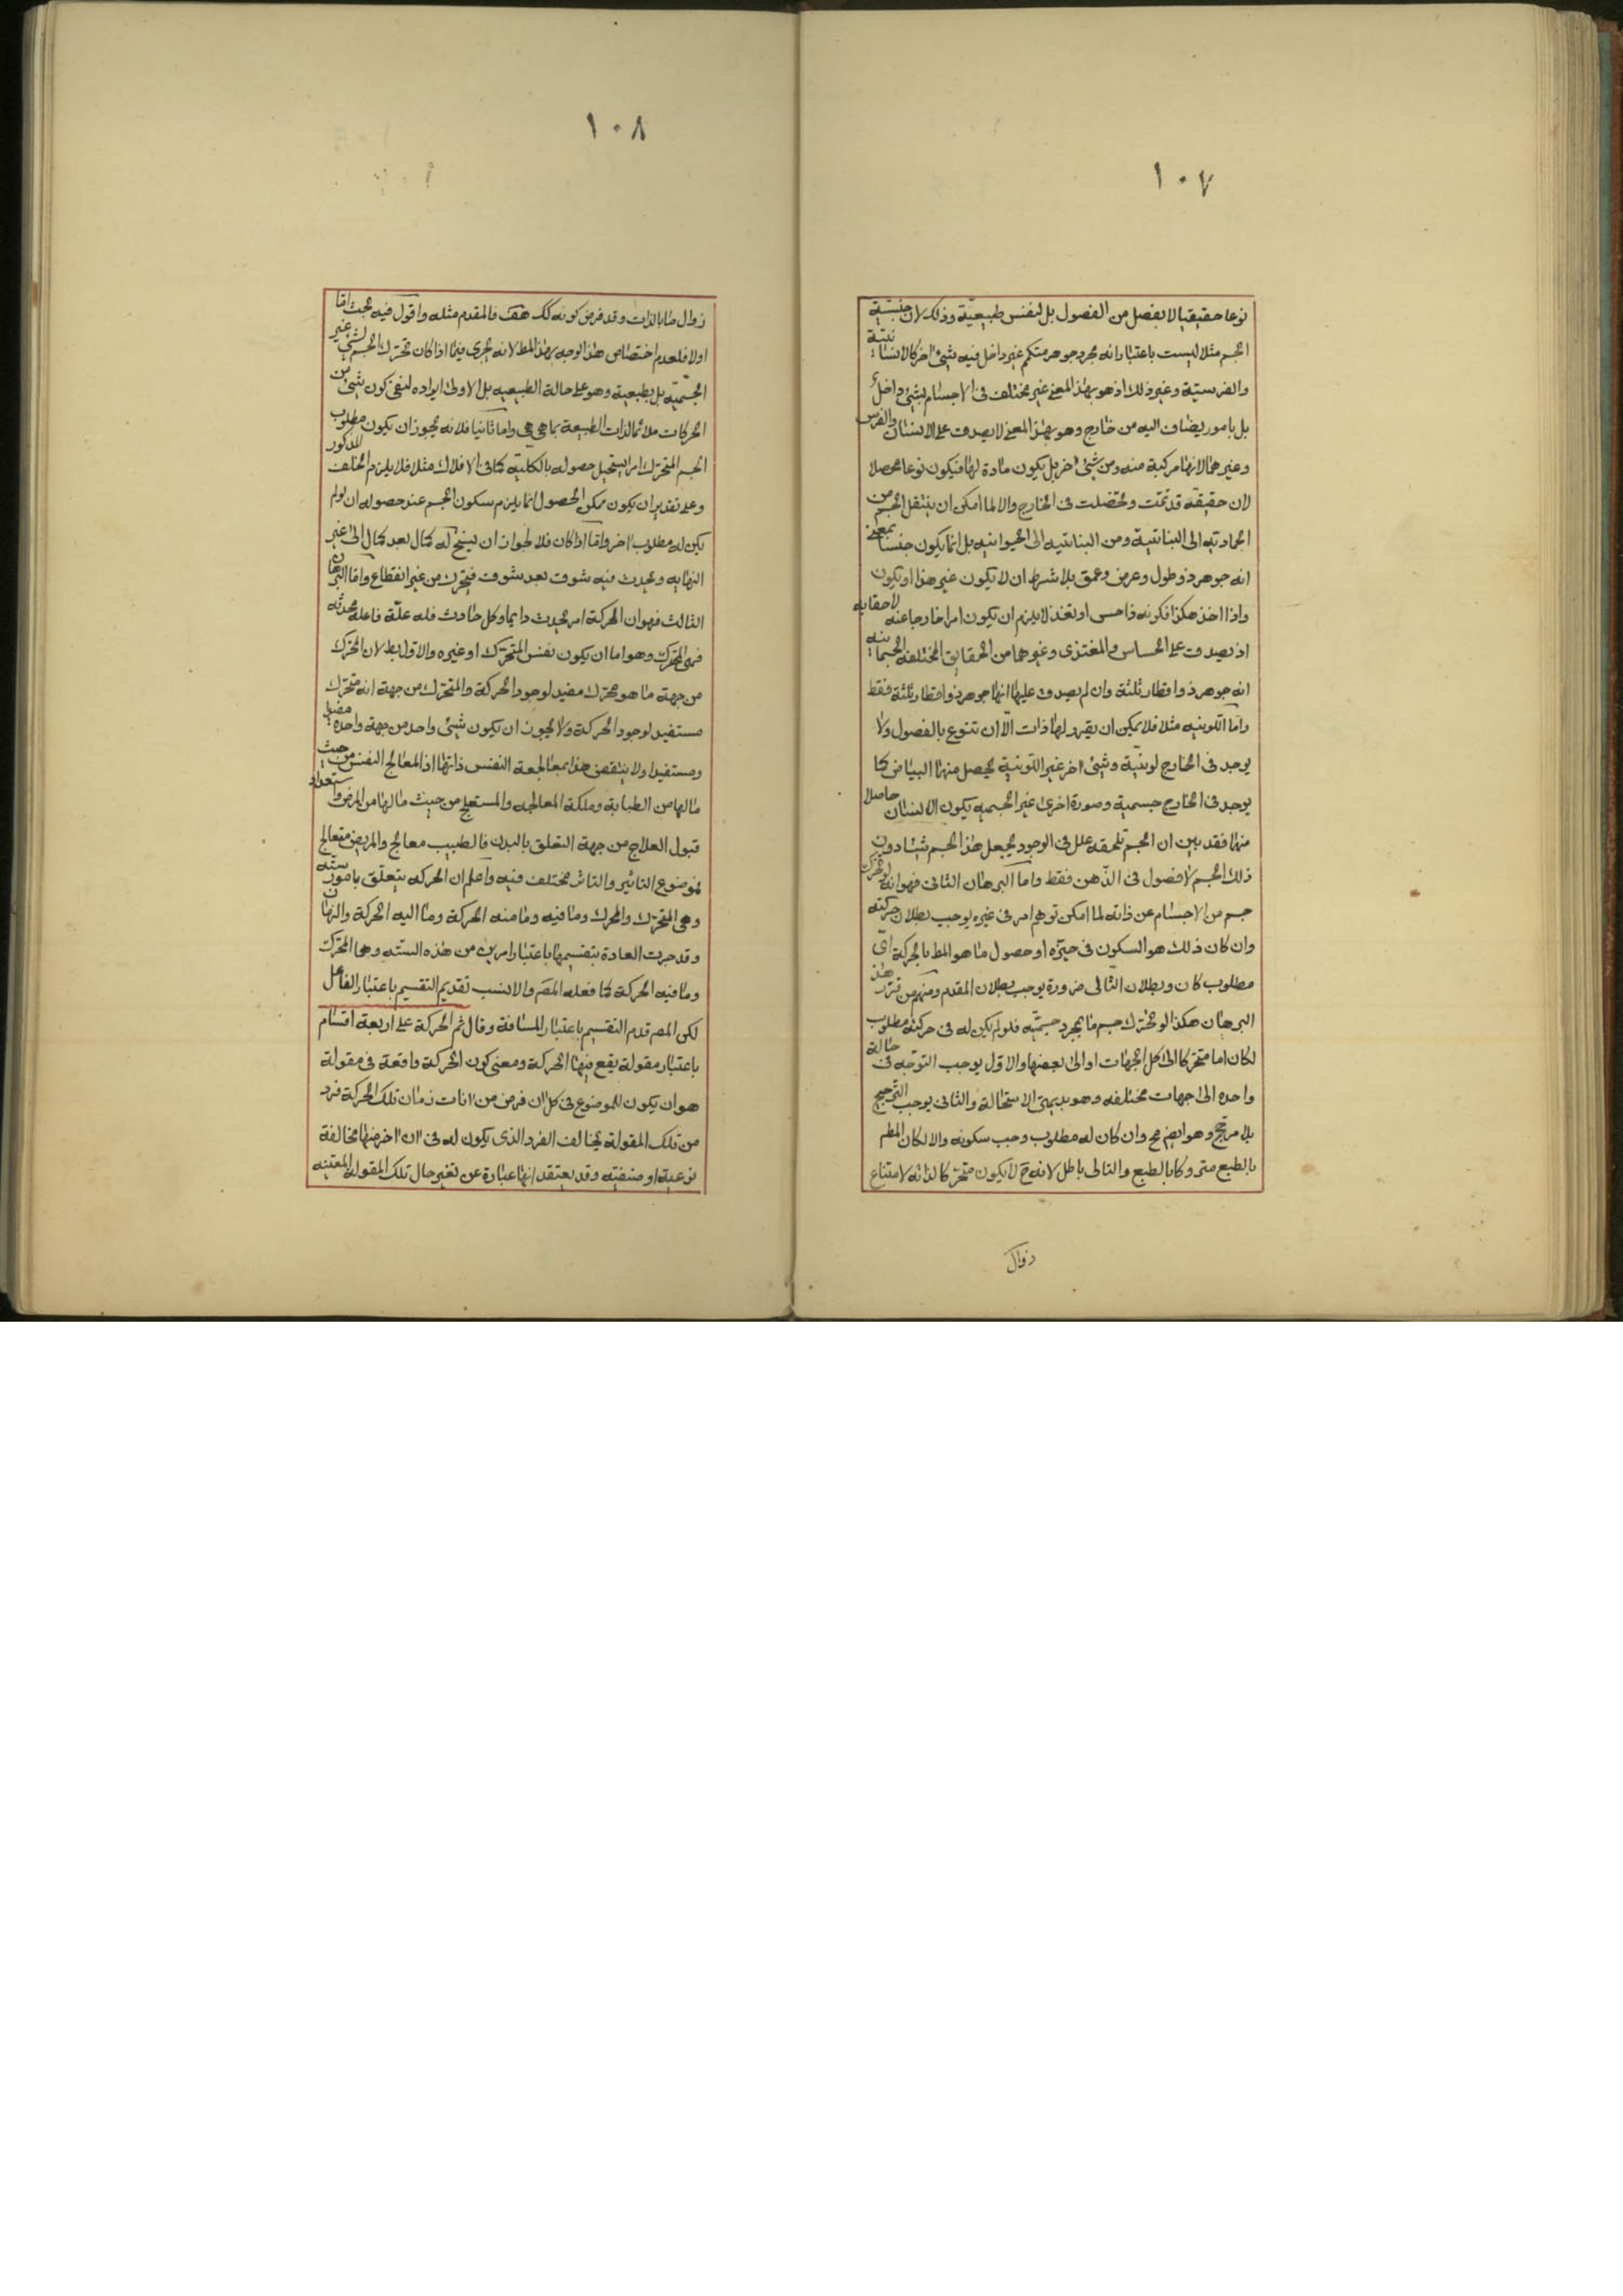 ١٠٧
نوعا حقيقيا لا بفصل من الفصول بل لنفس طبيعية وذلك لان جنسية
الجسم مثلا ليست باعتبار انه مجرد جوهر متكمم غير داخل فيه شئ اخر كالانسانية
والفرسية وغير ذلك اذ هو بهذا المعنى غير مختلف فى الاجسام بشئ داخل
بل بامور يضاف اليه من خارج وهو بهذا المعنى لا يصدق على الانسان والفرس
وغيرهما لانها مركبة منه ومن شئ اخر بل يكون مادة لها فيكون نوعا محصلا
لان حقيقته قد تمت وتحصلت فى الخارج والا لما امكن ان ينتقل الجسم من
الجمادية الى النباتية ومن النباتية الى الحيوانيه بل انما يكون جنسا بمعنى
انه جوهر ذو طول وعرض وعمق بلا شرط ان لا يكون غير هذا او يكون
واذا اخذ هكذا فكونه ذا حس او تغذ لا يلزم ان يكون امرا خارجا عنه لاحقا به
اذ يصدق على الحساس والمغتذى وغيرهما من الحقايق المختلفه الجسمانيه
انه جوهر ذو اقطار ثلثة وان لم يصدق عليها انها جوهر ذو اقطار ثلثة فقط
واما اللونيه مثلا فلا يمكن ان يقرر لها ذات الا ان تتنوع بالفصول ولا
يوجد فى الخارج لونية وشئ اخر غير اللونية يحصل منهما البياض كما
يوجد فى الخارج جسمية وصورة اخرى غير الجسميه يكون الانسان حاصلا
منهما فقد بين ان الجسم تلحقه علل فى الوجود يجعل هذا الجسم شيئا دون
ذلك الجسم لا فصول فى الذهن فقط واما البرهان الثانى فهو انه لو تحرك
جسم من الاجسام عن ذاته لما امكن توهم امر فى غيره يوجب بطلان حركته
وان كان ذلك هو السكون فى حيزه او حصول ما هو المط بالحركة اى
مطلوب كان وبطلان التالى ضرورة يوجب بطلان المقدم ومنهم من قرر هذا
البرهان هكذا لو تحرك جسم ما بمجرد جسميته فلو لم يكن له فى حركته مطلوب
لكان اما متحركا الى كل الجهات او الى بعضها والاول يوجب التوجه فى حالة
واحده الى جهات مختلفه وهو بديهى الاستحالة والثانى يوجب الترجيح
بلا مرجح وهو ايض مح وان كان له مطلوب وجب سكونه والا لكان المط
بالطبع متروكا بالطبع والتالى باطل لانه ح لا يكون متحركا لذاته لامتناع
زوال
١٠٨
زوال ما بالذات وقد فرض كونه كك هف فالمقدم مثله واقول فيه بحث اما
اولا فلعدم اختصاص هذا الوجه بهذا المط لانه يجرى فيما اذا كان تحرك الجسم لشئ غير
الجسمية بل بطبيعية وهو على حالة الطبيعيه بل الاولى ايراده لنفى كون شئ من
الحركات ملائما لذات الطبيعة بما هى هى واما ثانيا فلانه يجوز ان يكون مطلوب
الجسم المتحرك امرا يستحيل حصوله بالكلية كما فى الافلاك مثلا فلا يلزم الخلف المذكور
وعلى تقدير ان يكون ممكن الحصول انما يلزم سكون الجسم عند حصوله ان لو لم
يكن له مطلوب اخر واما اذا كان فلا لجواز ان يسنح له كمال بعد كمال الى غير
النهايه ويحدث فيه شوق بعد شوق فيتحرك من غير انقطاع واما البرهان
الثالث فهو ان الحركة امر يحدث دايما وكل حادث فله علة فاعلة محدثه
فهى المحرك وهو اما ان يكون نفس المتحرك او غيره والاول بط لان المحرك
من جهة ما هو محرك مفيد لوجود الحركة والمتحرك من جهة انه متحرك
مستفيد لوجود الحركة ولا يجوز ان يكون شئ واحد من جهة واحده مفيدا
ومستفيدا ولا ينتقض هذا بمعالجة النفس ذاتها اذ المعالج النفس من حيث
مالها من الطبابة وملكة المعالجه والمستعلج من حيث مالها من المرض واستعداد
قبول العلاج من جهة التعلق بالبدن فالطبيب معالج والمريض متعالج
فموضوع التاثير والتاثر مختلف فيه واعلم ان الحركه يتعلق بامور سته
وهى المتحرك والمحرك وما فيه وما منه الحركة وما اليه الحركة والزمان
وقد جرت العادة بتقسيمها باعتبار امرين من هذه السته وهما المحرك
وما فيه الحركة كما فعله المص والانسب تقديم التقسيم باعتبار الفاعل
لكن المصر قدم التقسيم باعتبار المسافة وقال ثم الحركة على اربعة اقسام
باعتبار مقولة يقع فيها الحركة ومعنى كون الحركة واقعة فى مقولة
هو ان يكون للموضوع فى كل ان فرض من انات زمان تلك الحركة فرد
من تلك المقولة يخالف الفرد الذى يكون له فى ان اخر ضها مخالفة
نوعية او صنفية وقد يعتقد انها عبارة عن تغير حال تلك المقولة المعينه